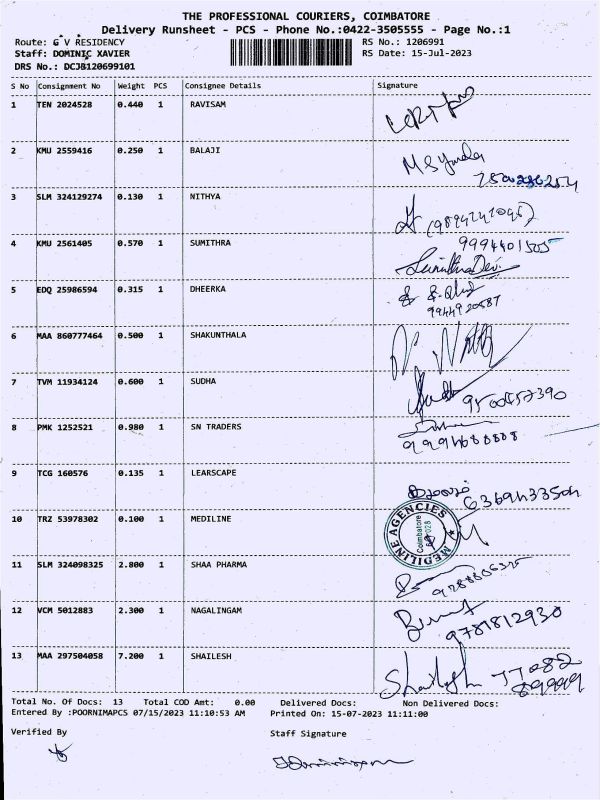 THE PROFESSIONAL COURIERS, COIMBATORE
Delivery Runsheet - PCS - Phone No.:0422-3505555 - Page No.:1
Route: G V RESIDENCY RS No.: 1206991
Staff: DOMINIC XAVIER RS Date: 15-Jul-2023
DRS No.: DCJB120699101
S No Consignment No Weight PCS Consignee Details Signature
1 TEN 2024528 0.440 1 RAVISAM
2 KMU 2559416 0.250 1 BALAJI
3 SLM 324129274 0.130 1 NITHYA
4 KMU 2561405 0.570 1 SUMITHRA
9994401505
5 EDQ 25986594 0.315 1 DHEERKA
9944920587
6 MAA 860777464 0.500 1 SHAKUNTHALA
7 TVM 11934124 0.600 1 SUDHA
9500457390
8 PMK 1252521 0.980 1 SN TRADERS
9 TCG 160576 0.135 1 LEARSCAPE
10 TRZ 53978302 0.100 1 MEDILINE
MEDILINE AGENCIES
Coimbatore
11 SLM 324098325 2.800 1 SHAA PHARMA
12 VCM 5012883 2.300 1 NAGALINGAM
9781812930
13 MAA 297504058 7.200 1 SHAILESH
Shailesh 77082
89999
Total No. Of Docs: 13 Total COD Amt: 0.00 Delivered Docs: Non Delivered Docs:
Entered By :POORNIMAPCS 07/15/2023 11:10:53 AM Printed On: 15-07-2023 11:11:00
Verified By Staff Signature